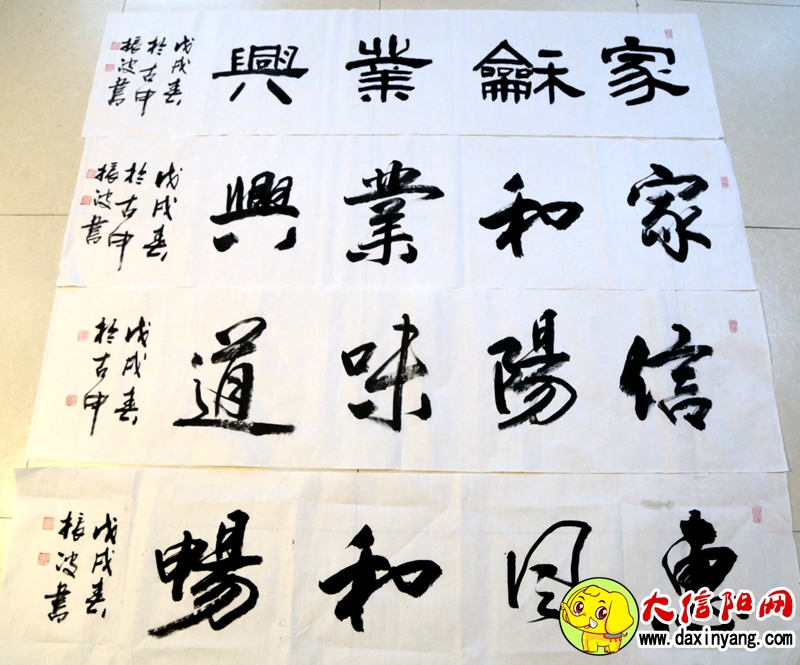 家龢業興
戊戌春
於古申
振波書
家和業興
戊戌春
於古申
振波書
信陽味道
戊戌春
於古申
惠風和暢
戊戌春
振波書
大信阳网
www.daxinyang.com